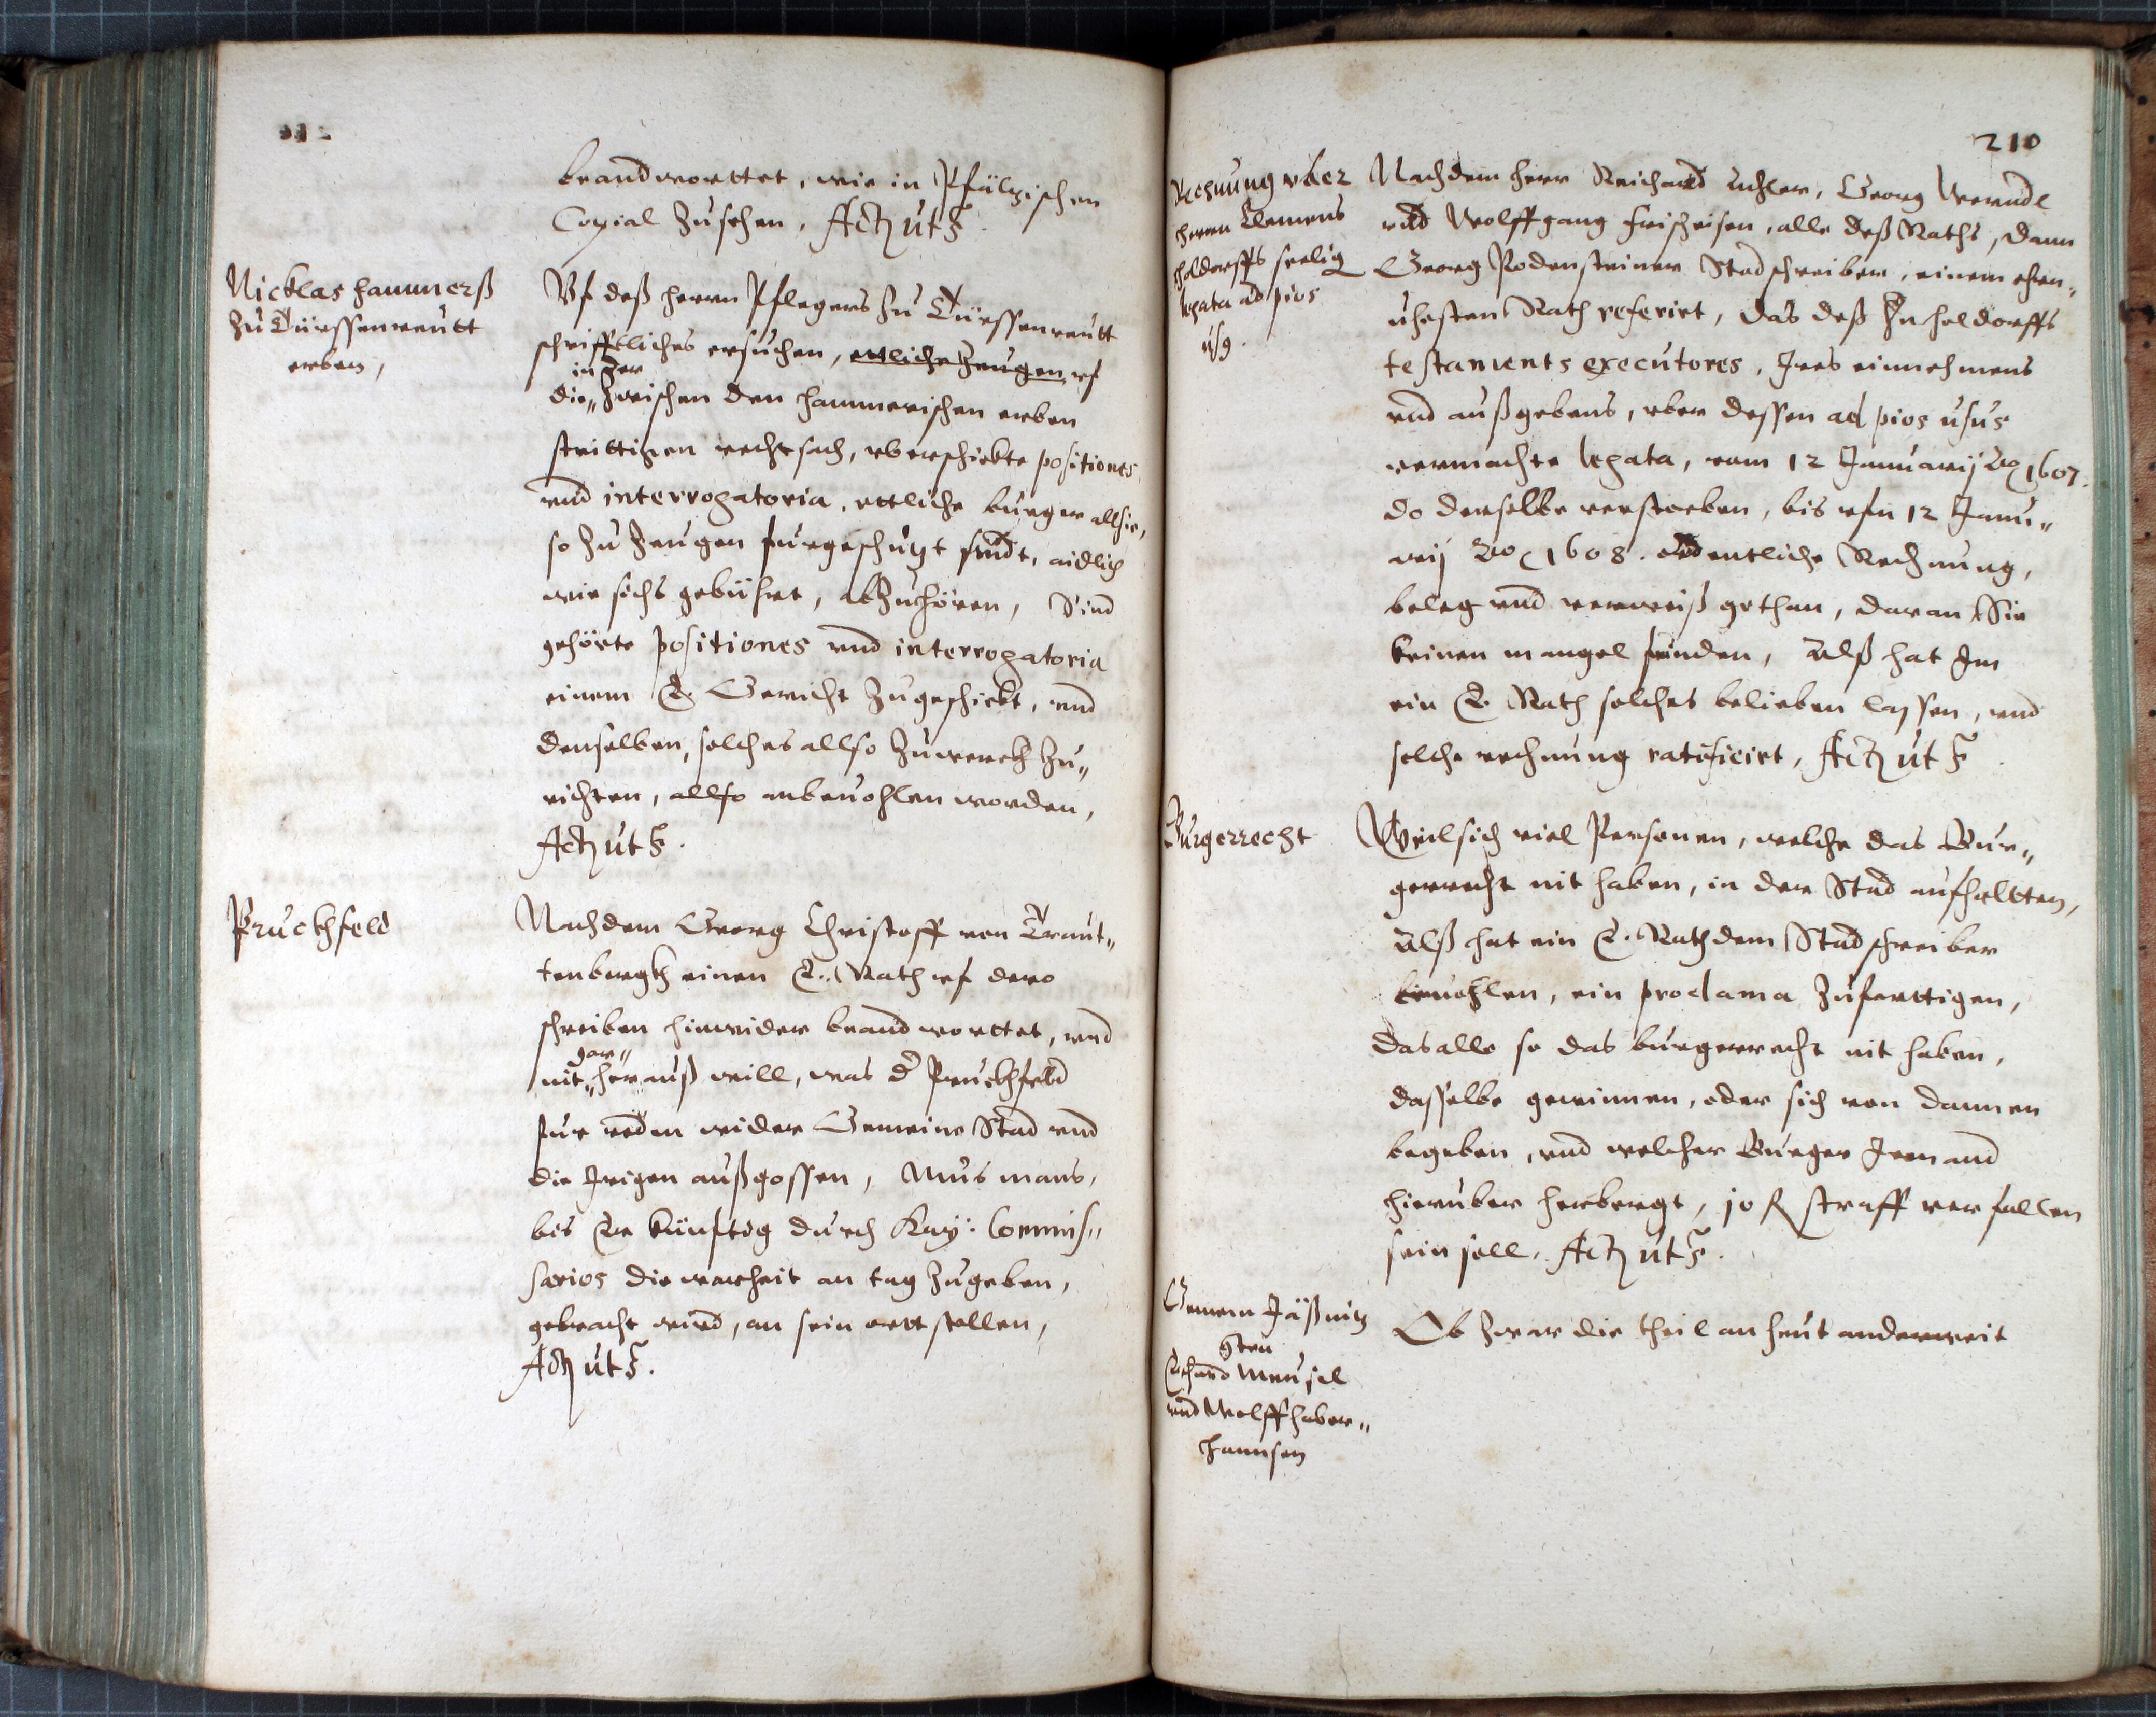 beandworttet, wie in Pfältzischen
Copial zusehen. Act ut s.
Nicklas Hammerß
zu Türssenreutt
erben,
Vf deß herrn Pflegers zu Türssenreutt
schrifftliches ersuchen, ettliche Zeugen vf
in der
die zwischen den Hammerischen erben
strittigen rechtsach, vberschickte positiones
vnd interrogatoria, ettliche burger allhie,
so zu Zeugen furgeschützt sindt, aidlich
wie sichs gebühret, abzuhören, Sind
gehörte positiones vnd interrogatoria
einem E. Gericht zugeschickt, vnd
denselben, solches allso zuwerck zu"
richten, allso anbeuohlen worden,
Act ut s.
Pruckhfeld
Nachdem Georg Christoff von Traut"
tenbergkh einen E. Rath vf dero
schreiben hinwider beandworttet, vnd
gar"
nit herauß will, was d Pruckhfeld
fur reden wider Gemeine Stad vnd
die Irigen außgossen, Mus mans,
bis Er künftig durch Kay: Commis"
sarios die warheit an tag zugeben,
gebracht wird, an sein ortt stellen,
Act ut s.
210
Rechnung vber
herrn Clemens
Holdorffs seelig
legata ad pios
usg.
Nachdem herr Reichard Aichler, Georg Werndl
vnd Wolffgang Frischeisen, alle deß Raths, dann
Georg Rodensteiner Stadschreiber, einem ehrn"
uhesten Rath referirt, das deß Hn Holdorffs
testaments executores, Ires einnehmens
vnd außgebens, vber dessen ad pios usus
vermachte legata, vom 12 Januarij Ao 1607.
do derselbe verstorben, bis vfn 12 Janu"
arij Ao 1608. ordentliche Rechnung,
beleg vnd verweiß gethan, daran Sie
keinen mangel funden, Alß hat Im
ein E. Rath solches belieben lassen, vnd
solche rechnung ratificirt, Act ut s.
Burgerrecht
Weil sich viel Personen, welche das Bur"
gerrecht nit haben, in der Stad aufhaltten,
Alß hat ein E. Rath dem Stadschreiber
beuohlen, ein proclama zuferttigen,
das alle so das burgerrecht nit haben,
dasselbe gewinnen, oder sich von dannen
begeben, vnd welcher Burger Jemand
hieruber herbergt, 10 fl straff verfallen
sein soll. Act ut s.
Gemein Jäßnitz
gten
Erhard Meusel
vnd Wolff Haber"
Hannsen
Ob zwar die theil an heut anderweit